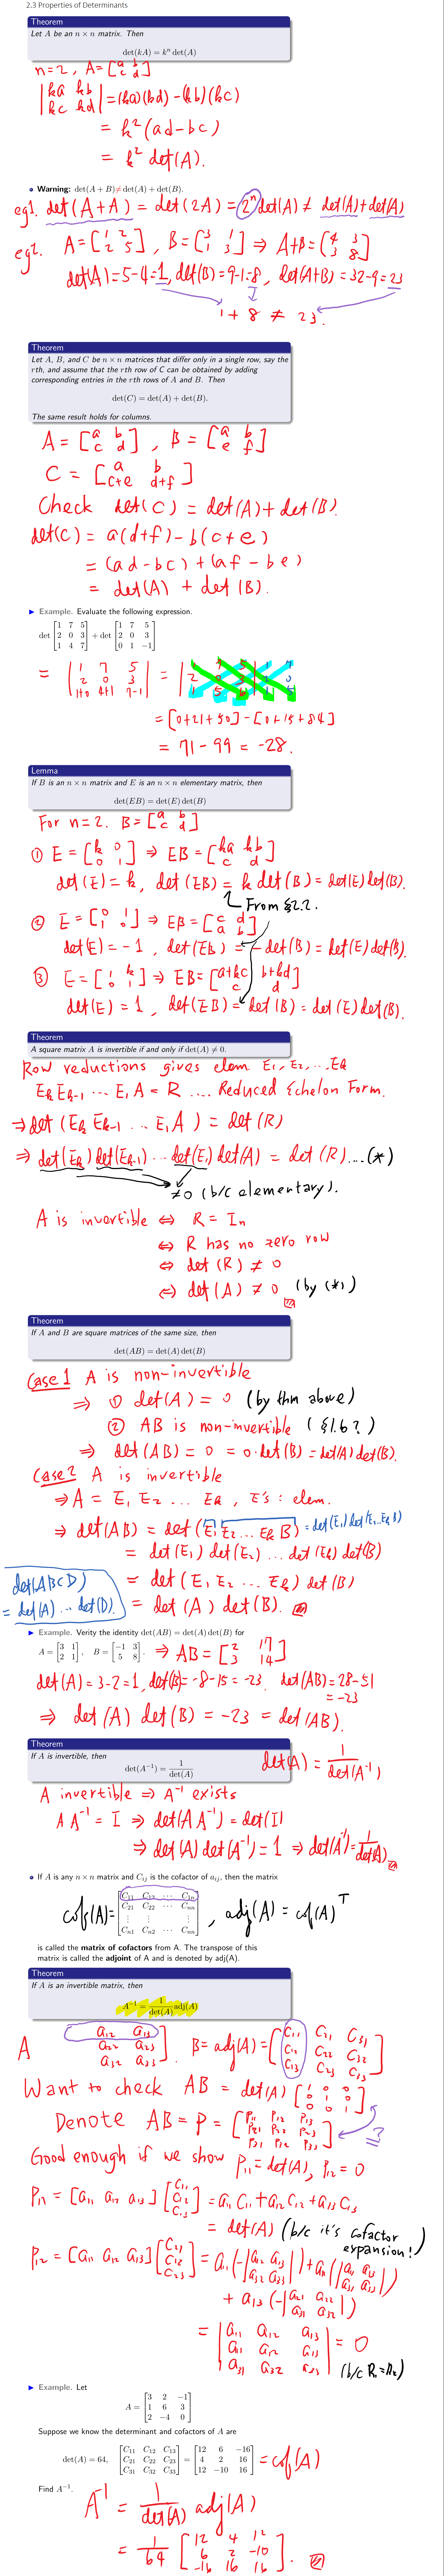 2.3 Properties of Determinants
Theorem
Let A be an n × n matrix. Then
det(kA) = kⁿ det(A)
n=2, A=[a b; c d]
|ka kb; kc kd| = (ka)(kd) - (kb)(kc)
= k²(ad-bc)
= k² det(A).
• Warning: det(A + B) ≠ det(A) + det(B).
eg1. det(A+A) = det(2A) = 2ⁿ det(A) ≠ det(A)+det(A)
eg2. A=[1 2; 2 5], B=[3 1; 1 3] ⇒ A+B=[4 3; 3 8]
det(A)=5-4=1, det(B)=9-1=8, det(A+B)=32-9=23
1 + 8 ≠ 23.
Theorem
Let A, B, and C be n × n matrices that differ only in a single row, say the
rth, and assume that the rth row of C can be obtained by adding
corresponding entries in the rth rows of A and B. Then
det(C) = det(A) + det(B).
The same result holds for columns.
A = [a b; c d], B = [a b; e f]
C = [a b; c+e d+f]
Check det(C) = det(A) + det(B).
det(C) = a(d+f) - b(c+e)
= (ad-bc) + (af-be)
= det(A) + det(B).
▶ Example. Evaluate the following expression.
det [1 7 5; 2 0 3; 1 4 7] + det [1 7 5; 2 0 3; 0 1 −1]
= |1 7 5; 2 0 3; 1+0 4+1 7-1| = |1 7 5; 2 0 3; 1 5 6| 1 7; 2 0; 1 5
= [0+21+50] - [0+15+84]
= 71 - 99 = -28.
Lemma
If B is an n × n matrix and E is an n × n elementary matrix, then
det(EB) = det(E) det(B)
For n=2. B=[a b; c d]
① E = [k 0; 0 1] ⇒ EB = [ka kb; c d]
det(E) = k, det(EB) = k det(B) = det(E)det(B).
From §2.2.
② E = [0 1; 1 0] ⇒ EB = [c d; a b]
det(E) = -1, det(EB) = -det(B) = det(E) det(B).
③ E = [1 k; 0 1] ⇒ EB = [a+kc b+kd; c d]
det(E) = 1, det(EB) = det(B) = det(E) det(B).
Theorem
A square matrix A is invertible if and only if det(A) ≠ 0.
Row reductions gives elem E₁, E₂, ... Ek
Ek Ek-1 ... E₁ A = R .... Reduced Echelon Form.
⇒ det(Ek Ek-1 ... E₁ A) = det(R)
⇒ det(Ek) det(Ek-1) ... det(E₁) det(A) = det(R) ....(*)
≠0 (b/c elementary).
A is invertible ⇔ R = In
⇔ R has no zero row
⇔ det(R) ≠ 0
⇔ det(A) ≠ 0 (by (*))
Theorem
If A and B are square matrices of the same size, then
det(AB) = det(A) det(B)
Case 1 A is non-invertible
⇒ ① det(A) = 0 (by thm above)
② AB is non-invertible (§1.6?)
⇒ det(AB) = 0 = 0·det(B) = det(A)det(B).
Case 2 A is invertible
⇒ A = E₁ E₂ ... Ek, E's: elem.
⇒ det(AB) = det(E₁ E₂ ... Ek B) = det(E₁) det(E₂...Ek B)
= det(E₁) det(E₂) ... det(Ek) det(B)
= det(E₁ E₂ ... Ek) det(B)
= det(A) det(B).
det(ABCD)
= det(A) ... det(D).
▶ Example. Verity the identity det(AB) = det(A) det(B) for
A = [3 1; 2 1], B = [−1 3; 5 8]. ⇒ AB = [2 17; 3 14]
det(A) = 3-2=1, det(B)= -8-15 = -23. det(AB)=28-51
= -23
⇒ det(A) det(B) = -23 = det(AB).
Theorem
If A is invertible, then
det(A⁻¹) = 1/det(A)
det(A) = 1/det(A⁻¹)
A invertible ⇒ A⁻¹ exists
A A⁻¹ = I ⇒ det(A A⁻¹) = det(I)
⇒ det(A) det(A⁻¹) = 1 ⇒ det(A⁻¹) = 1/det(A).
• If A is any n × n matrix and Cij is the cofactor of aij, then the matrix
cof(A)= [C11 C12 ⋯ C1n; C21 C22 ⋯ C2n; ⋮ ⋮ ⋮; Cn1 Cn2 ⋯ Cnn], adj(A) = cof(A)ᵀ
is called the matrix of cofactors from A. The transpose of this
matrix is called the adjoint of A and is denoted by adj(A).
Theorem
If A is an invertible matrix, then
A⁻¹ = 1/det(A) adj(A)
A a12 a13; a22 a23; a32 a33]. B = adj(A) = [C11 C21 C31; C12 C22 C32; C13 C23 C33]
Want to check AB = det(A) [1 0 0; 0 1 0; 0 0 1]
Denote AB = P = [P11 P12 P13; P21 P22 P23; P31 P32 P33] = ?
Good enough if we show P11 = det(A), P12 = 0
P11 = [a11 a12 a13] [C11; C12; C13] = a11 C11 + a12 C12 + a13 C13
= det(A) (b/c it's cofactor
expansion!)
P12 = [a11 a12 a13] [C21; C22; C23] = a11 (-|a12 a13; a32 a33|) + a12 (|a11 a13; a31 a33|)
+ a13 (-|a11 a12; a31 a32|)
= |a11 a12 a13; a11 a12 a13; a31 a32 a33| = 0
(b/c R1=R2)
▶ Example. Let
A = [3 2 −1; 1 6 3; 2 −4 0]
Suppose we know the determinant and cofactors of A are
det(A) = 64, [C11 C12 C13; C21 C22 C23; C31 C32 C33] = [12 6 −16; 4 2 16; 12 −10 16] = cof(A)
Find A⁻¹.
A⁻¹ = 1/det(A) adj(A)
= 1/64 [12 4 12; 6 2 -10; -16 16 16].